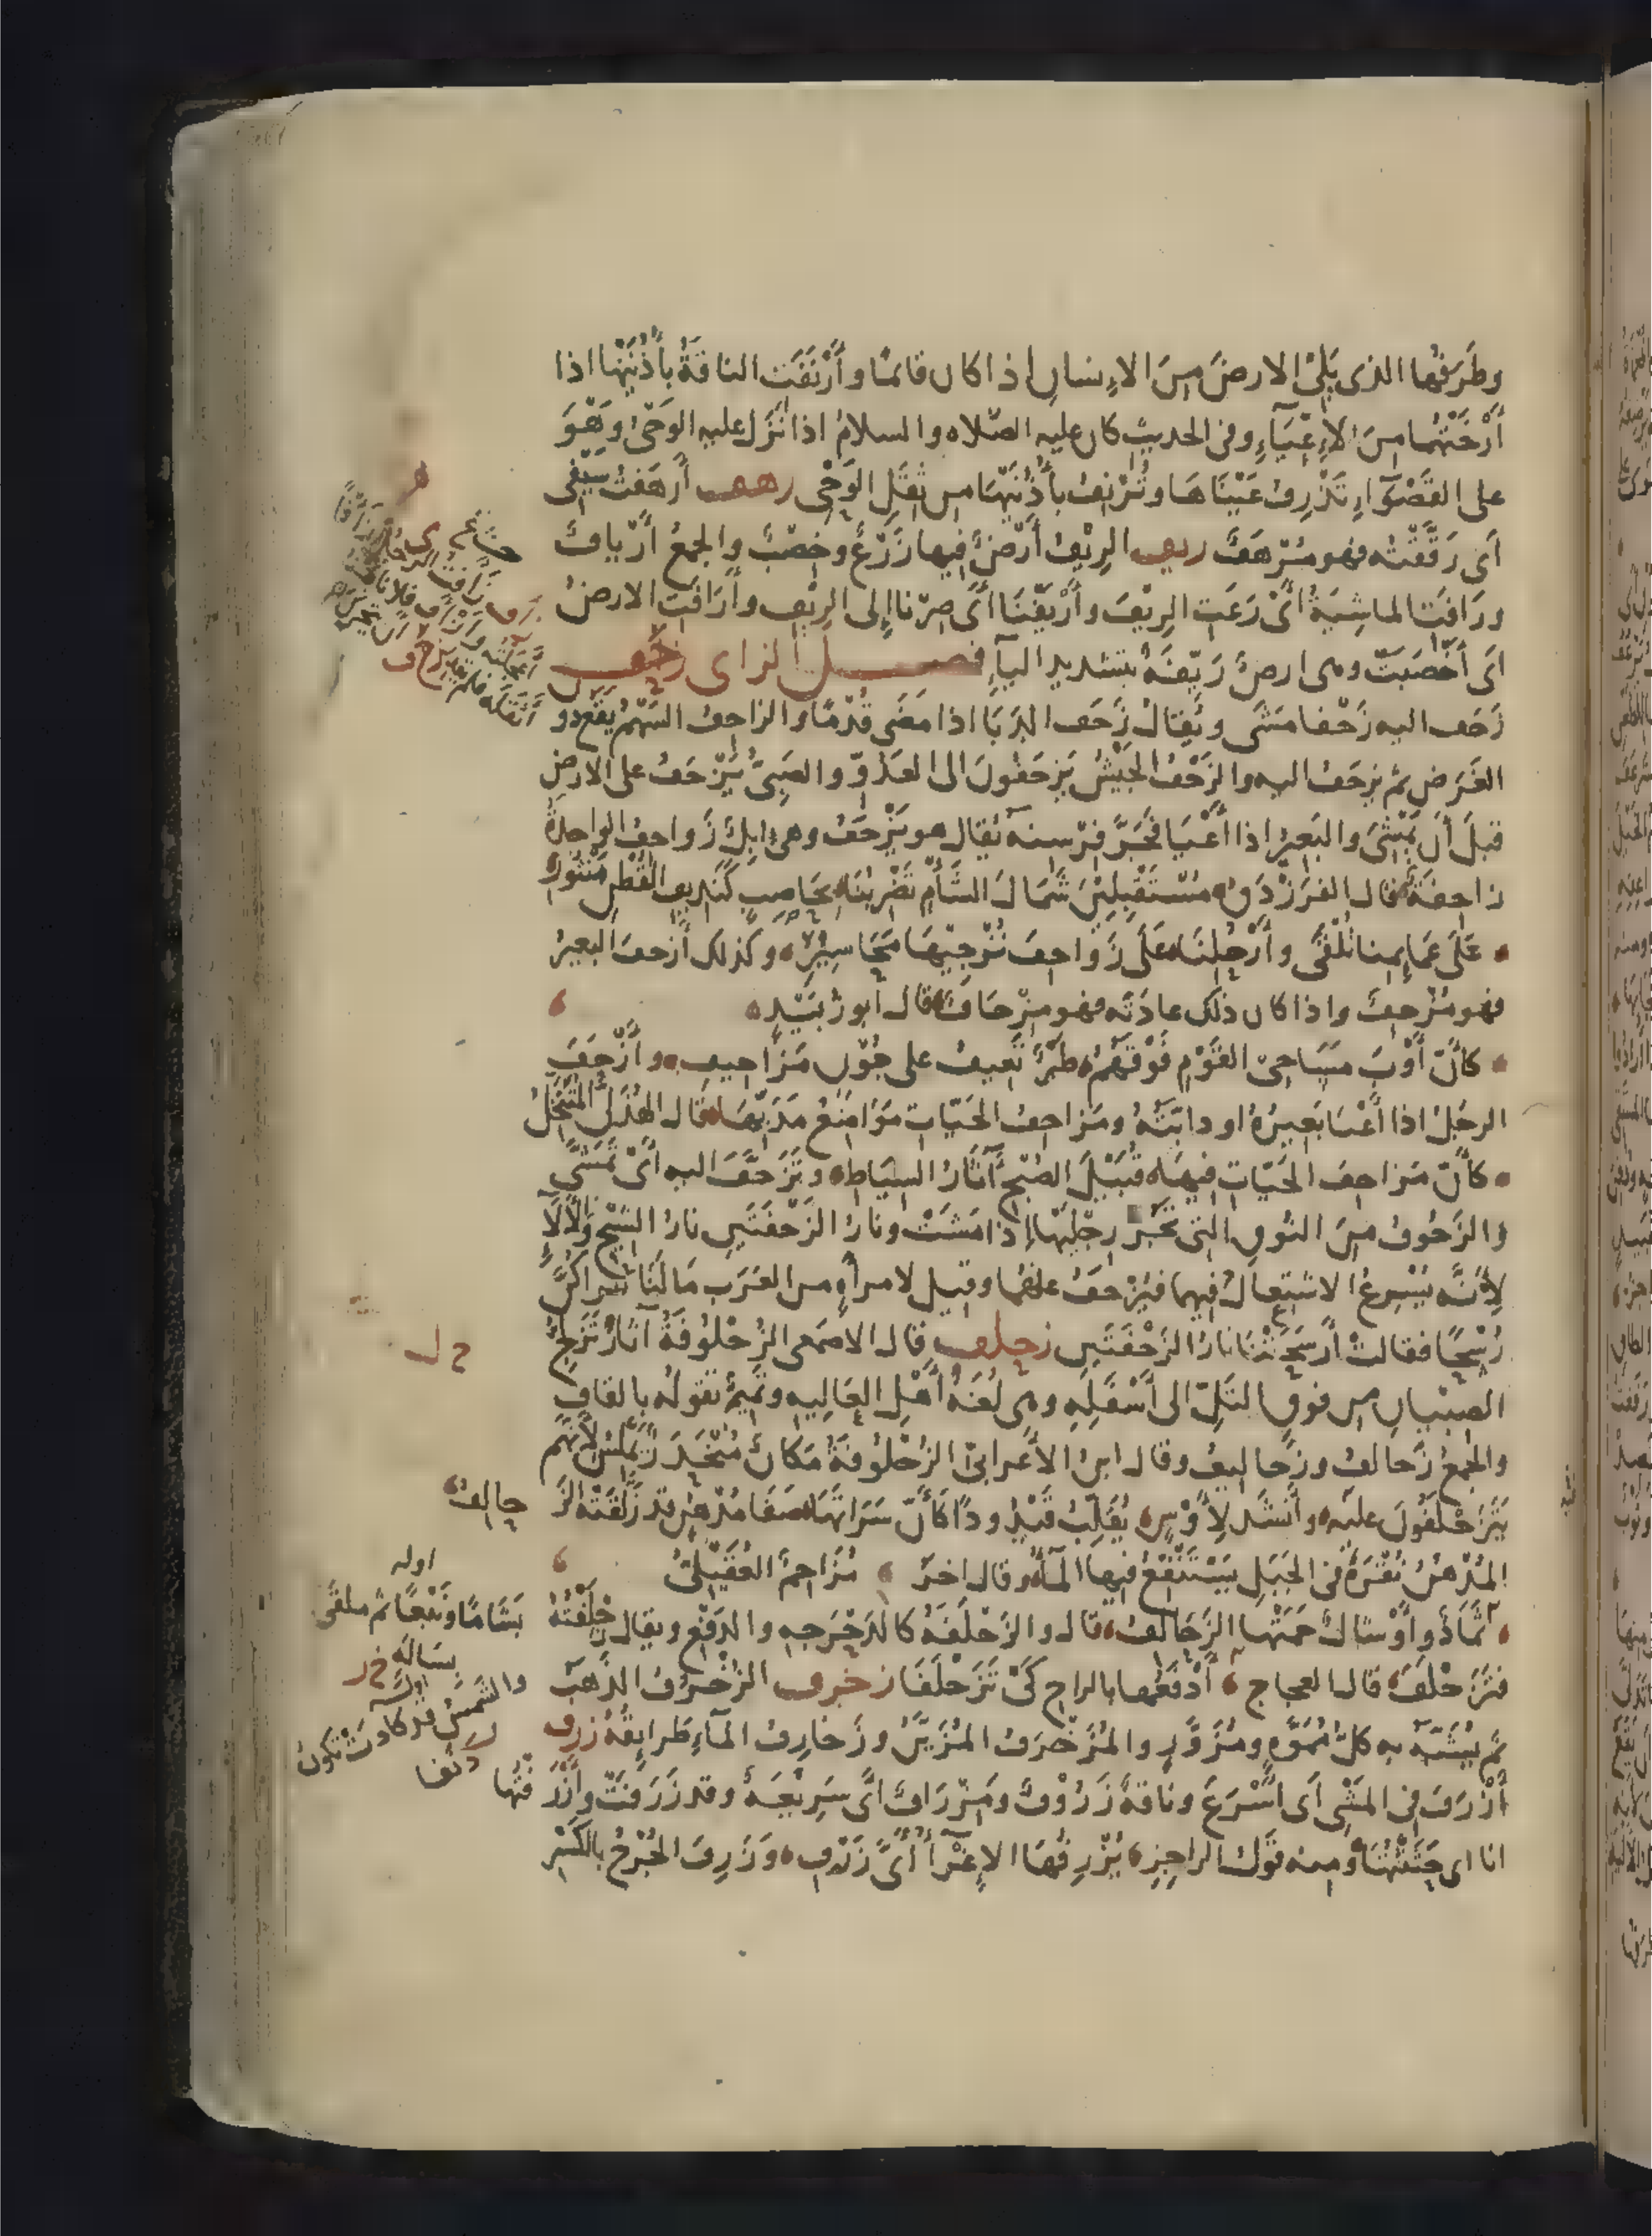 وطَرَفُها الذى يَلِىْ الارضَ مِنَ الاِنسانِ اذا كان قائمًا وأَرْنَفَتِ الناقةُ بأُذُنَيْها اذا
أَرْخَتْهُما مِنَ الاِعْيَآءِ وفى الحديث كان عليه الصّلاه والسلامُ اذا نَزَل عليه الوَحْىُ وهْوَ
على القَصْوَآءِ تَذْرِفُ عَيْنَاهَا وتُرْنِفُ بأُذُنَيْهَا من ثِقَلِ الوَحْىِ رهف أَرهَفتُ سَيْفى
أى رَقَّقْتُه فهو مُرْهَفٌ ريف الرِيْفُ أَرْضٌ فيها زَرْعٌ وخِصْبٌ والجمعُ أَرْيافٌ
ورَافَتِ الماشِيَةُ أىْ رَعَتِ الرِيْفَ وأَرْيَفْنَا أى صِرْنا إلى الرِيْفِ وأَرَافَتِ الارضُ
اى أَخْصَبَتْ وهى ارضٌ رَيِّفَةٌ بتشديد اليآءِ فصل الزاى زحف
زَحَف اليه زَحْفا مَشَى ويُقالُ زَحَف الدَبَا اذا مَضَى قُدْمًا والزاحفُ السَهْمُ يَقَع دو
الغَرَضِ ثم يزحَفُ اليه والزَحْفُ الجَيْشُ يَزحَفونَ الى العَدُوّ والصَبِىُّ يَتَزَحَفُ على الارضِ
قبلَ أَن يَمْشِىَ والبَعِيرُ اذا أَعْيَا فجَرَّ فِرْسِنَه يُقال هو يَزْحَفُ وهى إبِلٌ زَواحِفُ الواحدةُ
زاحِفَةٌ قال الفرَزْدَقُ مُسْتَقْبِلِيْنَ شَمَالَ الشَّأْمِ تَضْرِبُنَا بحَاصِبٍ كَنَدِيفِ القُطْنِ مَنْثُورِ
عَلَى عَمَائِمِنا تُلْقَى وأَرْحُلِنَا عَلَى زَوَاحِفَ نُزْجِيْهَا مَحَاسِيْرِ وكذلك أَزحفَ البعيرُ
فهو مُزْحِفٌ واذا كان ذلك عادَتَه فهو مِزْحَافٌ قال ابو زُبَيْدٍ
كأَنَّ أَوْبَ مَسَاحِى القَوْمِ فَوْقَهُمُ طَيْرٌ تَعِيفُ على جُوْنٍ مَزَاحِيفِ وأَزْحَفَ
الرجُلُ اذا أَعْيَا بَعِيرُهُ او دابّتُهُ ومَزَاحِفُ الحَيّاتِ مَوَاضِعُ مَدَبِّهَا قال الهُذَلىُّ المُتَنَخِّلُ
كأَنَّ مَزَاحِفَ الحَيّاتِ فيهَا قُبَيْلَ الصُبْحِ آثَارُ السِيَاطِ وتَزَحَّفَ اليه أىْ تَمَشَّى
والزَحُوفُ مِنَ النُوقِ التى تَجُرُّ رِجْلَيْهَا إذا مَشَتْ ونارُ الزَحْفَتَينِ نارُ الشِيْحِ والأَلَآءِ
لِأَنَّه يُسْرِعُ الاشتِعالُ فيهما فيُزْحَفُ عنهُما وقيل لامرأةٍ من العَرَبِ مَا لَنَا نَراكُنَّ
رُسْحًا فقالتْ أَرْسَحَتْنَا نارُ الزَحْفَتَينِ زحلف قال الاصمَعى الزُحْلُوفَةُ آثَارُ تَزَلُّجِ
الصِبْيانِ من فوقِ التَلِّ الى أَسْفَلِهِ وهى لُغَةُ أَهْلِ العَالِيهِ وتَمِيمٌ تقولُه بالقافِ
والجمعُ زَحالفُ وزَحاليفُ وقال ابنُ الأعرابىِّ الزُحْلُوفَةُ مَكَانٌ مُنْحَدِرٌ مُمَلَّسٌ لأَنَّهم
يَتَزَحْلَفُونَ عليه وأَنشَد لِأَوْسٍ يُقَلِّبُ قَيْدُودًا كأَنَّ سَرَاتَهَا صَفَا مُدْهُنٍ قد زَلَّقَتْه الزَ
حالفُ
المُدْهُنُ نُقْرَةٌ فى الجَبَلِ يَسْتَنْقِعُ فيها المآءُ وقال اخَرُ مُزَاحِمٌ العُقَيْلىُّ
قال والزَحْلَفَةُ كالدَحْرَجهِ والدَفْعِ ويقال زَحْلَفْتُهُ
فتَزَحْلَفَ قال العجاج أَدْفَعُها بالراحِ كَىْ تَزَحْلَفَا زخرف الزُخْرُفُ الذَهَبُ
ثم يُشَبَّهُ به كلُّ مُمَوَّهٍ ومُزَوَّرٍ والمُزَخْرَفُ المُزَيَّنُ وزَخَارِفُ المآءِ طَرايِقُهُ زرف
أَزْرَفَ فى المَشْىِ أى أَسْرَعَ وناقةٌ زَرُوْفٌ ومِزْرَافٌ أى سَرِيْعَةٌ وقد زَرَفَتْ وأَزْرَ
فْتُها
انا اى حَثَثْتُهَا ومنه قَوْلُ الراجِزِ يُزْرِفُهَا الاِغْرَآءُ أَىَّ زَرْفِ وَزَرِفَ الجُرْحُ بالكَسْرِ
ح ل
اوله
بَشَامًا ونَبْعًا ثم ملقَى
والشَمسُ قد كادَتْ تكونُ
دَنَفا